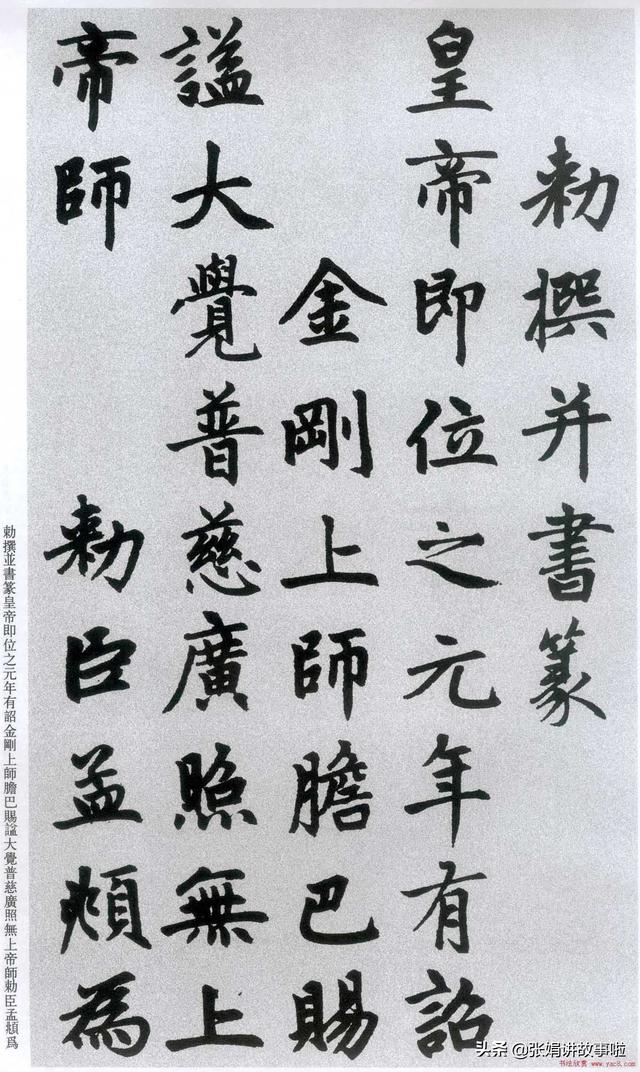 勅撰并書篆
皇帝即位之元年有詔
金剛上師膽巴賜
謚大覺普慈廣照無上
帝師
勅臣孟頫為
勅撰並書篆皇帝即位之元年有詔金剛上師膽巴賜謚大覺普慈廣照無上帝師勅臣孟頫爲
头条 @张娟讲故事啦
书法欣赏 www.yac8.com